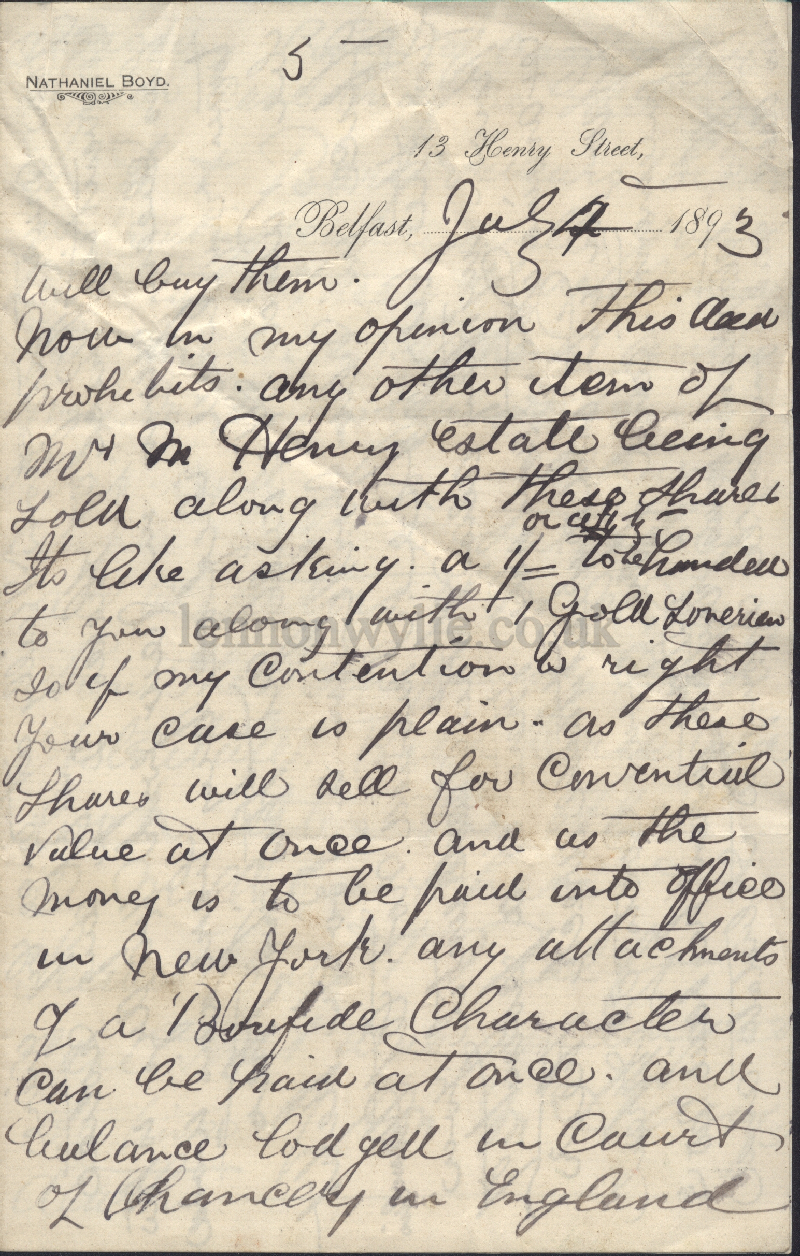 5 —
NATHANIEL BOYD.
13 Henry Street,
Belfast, July 7 1893
will buy them.
Now in my opinion This deed
prohibits. any other item of
Mr M Henry estate being
sold along with these shares
or
Its like asking. a 1/= to be handed
to you along with 1 Gold Soverien
so if my Contention is right
Your case is plain - as these
shares will sell for Conventiul
value at once. and as the
money is to be paid into office
in New York. any attachments
of a Bonifide Character
can be paid at once. and
balance lodged in Court
of Chancery in England
lennonwylie.co.uk